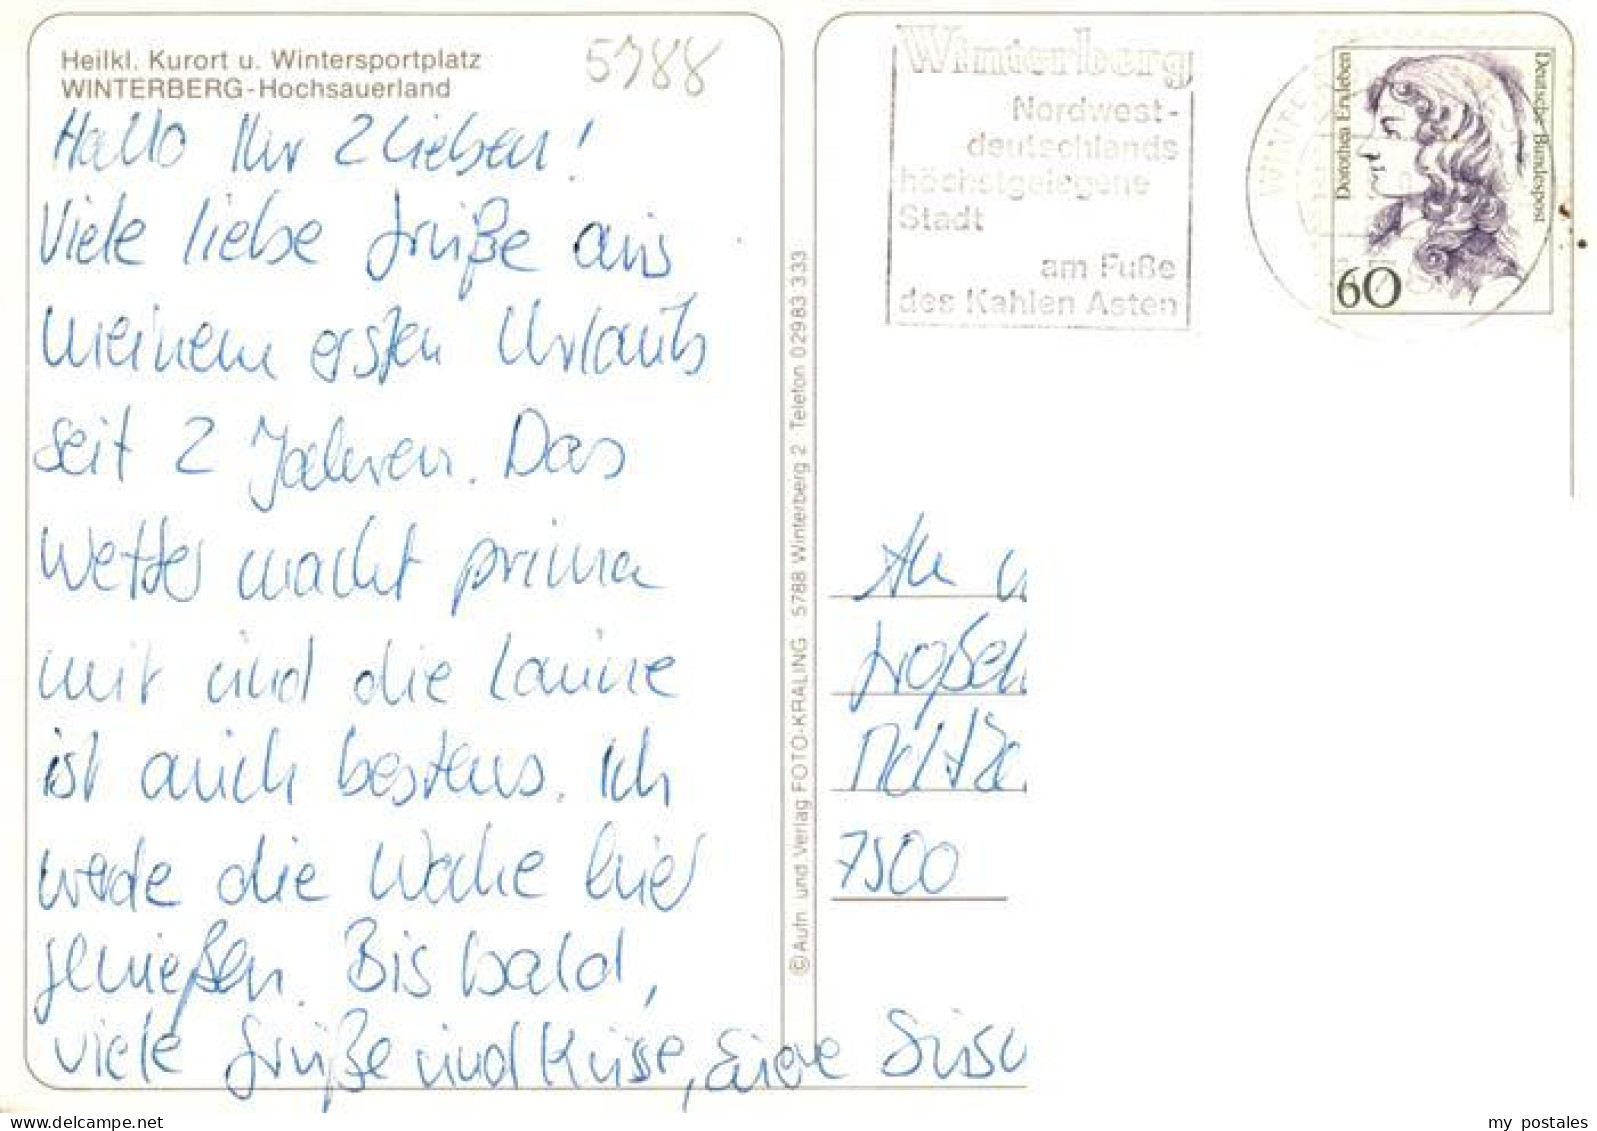 Heilkl. Kurort u. Wintersportplatz
WINTERBERG-Hochsauerland
5788
Hallo Ihr 2 Lieben!
Viele liebe Grüße aus
meinem ersten Urlaub
seit 2 Jahren. Das
Wetter macht prima
mit und die Laune
ist auch bestens. Ich
werde die Woche hier
genießen. Bis bald,
viele Grüße und Küsse, Eure
© Aufn. und Verlag FOTO-KRALING 5788 Winterberg 2 Telefon 02983 333
Winterberg
Nordwest-
deutschlands
höchstgelegene
Stadt
am Fuße
des Kahlen Asten
Dorothea Erxleben
Deutsche Bundespost
60
An
7500
my postales